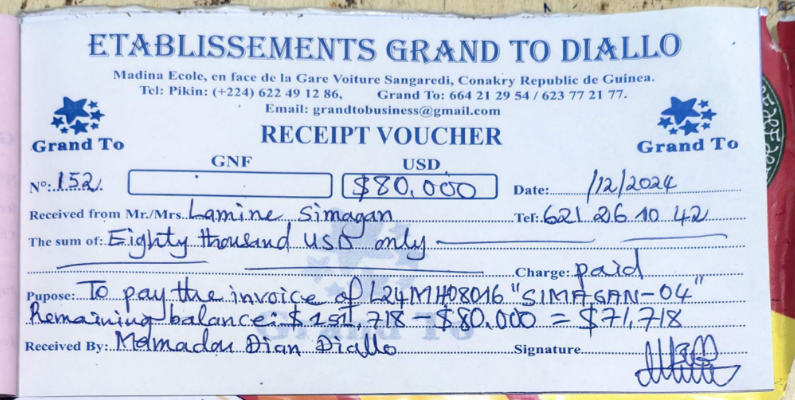 ETABLISSEMENTS GRAND TO DIALLO
Madina Ecole, en face de la Gare Voiture Sangaredi, Conakry Republic de Guinea.
Tel: Pikin: (+224) 622 49 12 86, Grand To: 664 21 29 54 / 623 77 21 77.
Email: grandtobusiness@gmail.com
Grand To RECEIPT VOUCHER Grand To
GNF USD
N°: 152 $80,000 Date: /12/2024
Received from Mr./Mrs. Lamine Simagan Tel: 621 26 10 42
The sum of: Eighty thousand USD only
Charge: paid
Pupose: To pay the invoice of L24MH08016 "SIMAGAN-04"
Remaining balance: $151,718 - $80.000 = $71,718
Received By: Mamadou Dian Diallo Signature